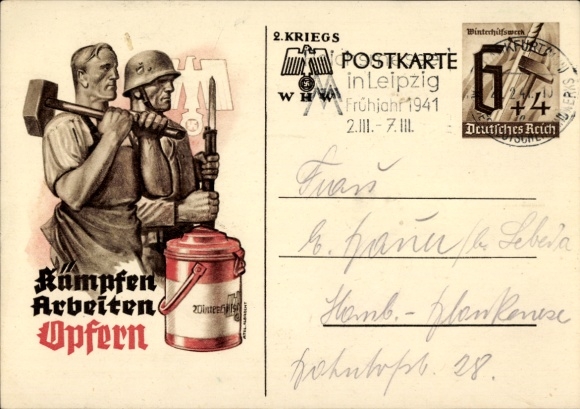 2. KRIEGS
WHW
POSTKARTE
in Leipzig
Frühjahr 1941
2.III.-7.III.
Winterhilfswerk
6+4
Deutsches Reich
Kämpfen
Arbeiten
Opfern
Winterhilfs
Frau
Hamb.-Blankenese
Bahnhofstr. 28.